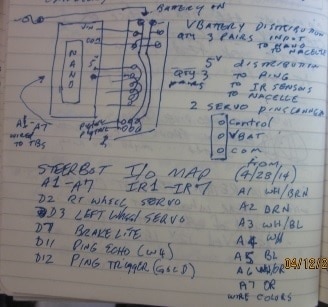 BATTERY ON
VBATTERY DISTRIBUTION
QTY 3 PAIRS INPUT
TO NANO
TO NACELLE
VIN
GND
NANO
5V
5V DISTRIBUTION
QTY 3 PAIRS
TO PING
TO IR SENSORS
TO NACELLE
2 SERVO
Control
VBAT
COM
A1-A7
WIRED
TO TBS
STEERBOT I/O MAP
A1-A7 IR1-IR7
D2 RT WHEEL SERVO
D3 LEFT WHEEL SERVO
D7 BRAKE LITE
D11 PING ECHO (WH)
D12 PING TRIGGER (GOLD)
FROM
(4/28/14)
A1 WH/BRN
A2 BRN
A3 WH/BL
A4 WH
A5 BL
A6 WH/OR
A7 OR
WIRE COLORS
04/12/